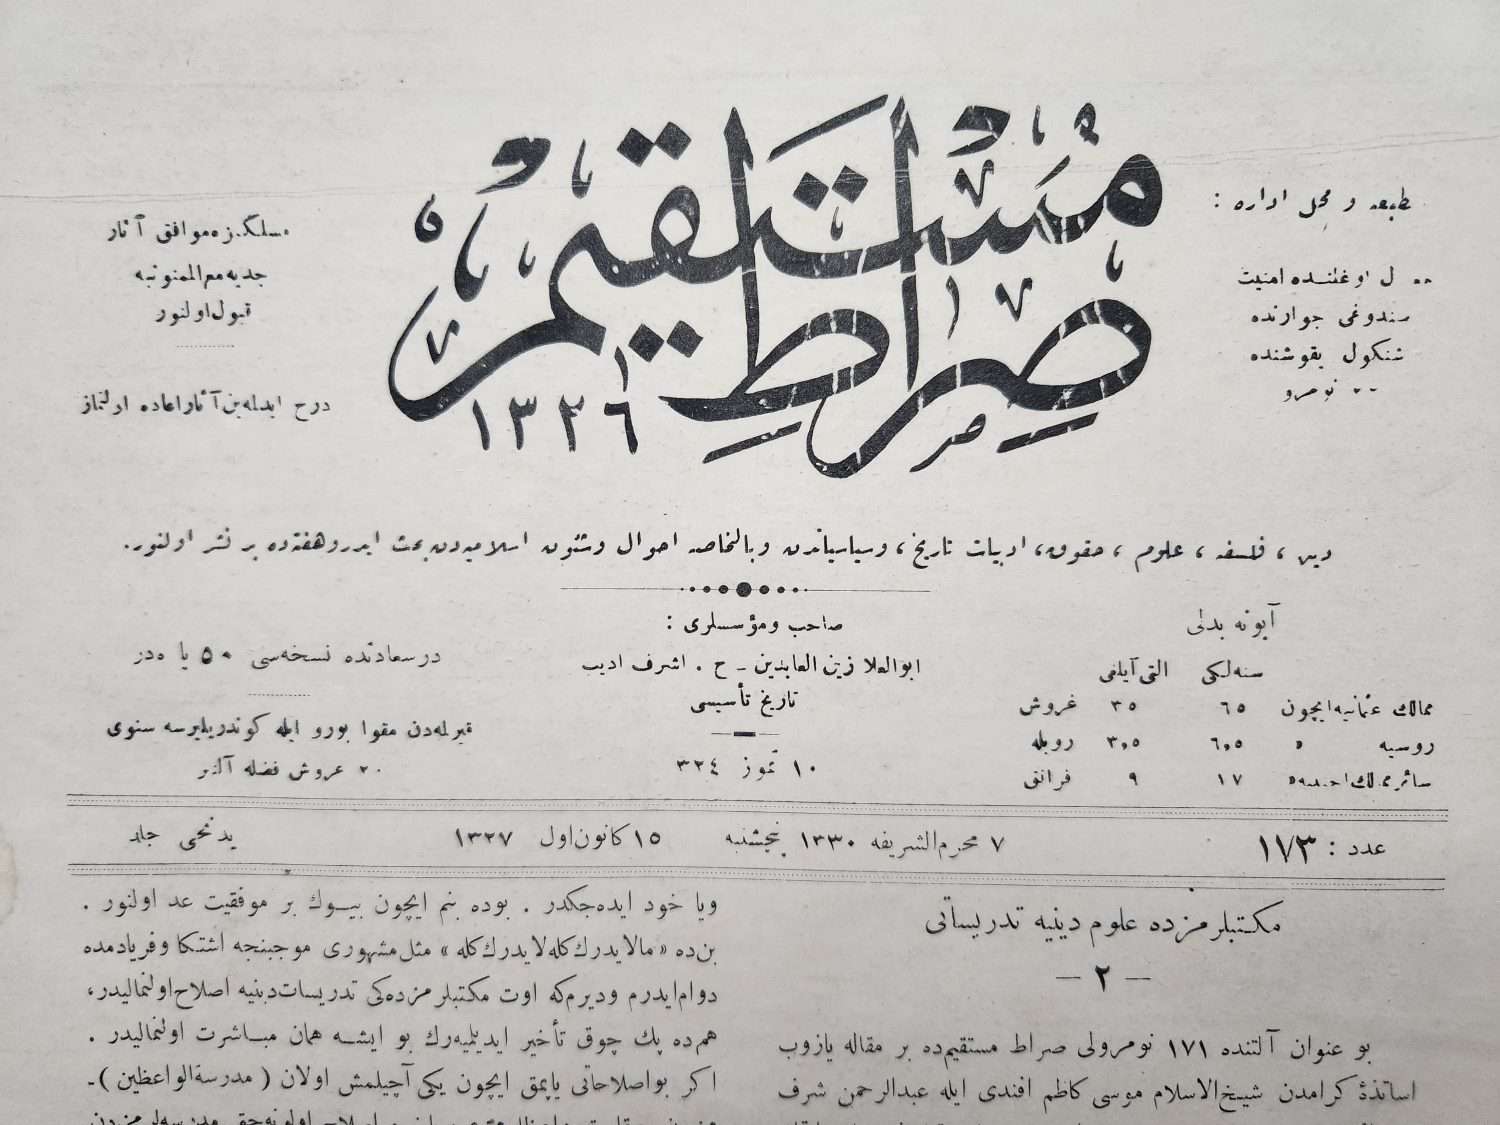 صراط مستقیم
١٣٢٦
طبعه و محل اداره :
ل اوغلنده امنیت
صندوغی جوارنده
شنکول یقوشنده
نومرو
مسلکمزه موافق آثار
جدیه مع الممنونیه
قبول اولنور
درج ایدلمه‌ین آثار اعاده اولنماز
دین ، فلسفه ، علوم ، حقوق، ادبیات تاریخ ، وسیاسیاتدن وبالخاصه احوال وشئون اسلامیه‌دن بحث ایدر وهفته‌ده بر نشر اولنور.
آبونه بدلی
سنه‌لکی التی آیلغی
ممالك عثمانیه ایچون ٦٥ ٣٥ غروش
روسیه » ٦,٥ ٣,٥ روبله
سائر ممالك اجنبیه » ١٧ ٩ فرانق
صاحب ومؤسسلری :
ابوالعلا زین العابدین ـ ح . اشرف ادیب
تاریخ تأسیسی
١٠ تموز ٣٢٤
درسعادتده نسخه‌سی ٥٠ پاره‌در
قیرلمه‌دن مقوا بورو ایله کوندریلیرسه سنوی
٢٠ غروش فضله آلنیر
عدد : ١٧٣
٧ محرم الشریفه ١٣٣٠ پنجشنبه ١٥ کانون اول ١٣٢٧
یدنجی جلد
مکتبلرمزده علوم دینیه تدریساتی
— ٢ —
بو عنوان آلتنده ١٧١ نومرولی صراط مستقیم‌ده بر مقاله یازوب
اساتذۀ کرامدن شیخ الاسلام موسی کاظم افندی ایله عبدالرحمن شرف
ویا خود ایده‌جکدر . بوده بنم ایچون بیوك بر موفقیت عد اولنور .
بن‌ده « مالایدرك کله لایدرك کله » مثل مشهوری موجبنجه اشتکا وفریادمده
دوام ایدرم ودیرم‌که اوت مکتبلرمزده‌کی تدریسات دینیه اصلاح اولنمالیدر،
هم‌ده پك چوق تأخیر ایدیلمیه‌رك بو ایشه همان مباشرت اولنمالیدر .
اکر بو اصلاحاتی یاپمق ایچون یکی آچیلمش اولان ( مدرسة الواعظین )ـ